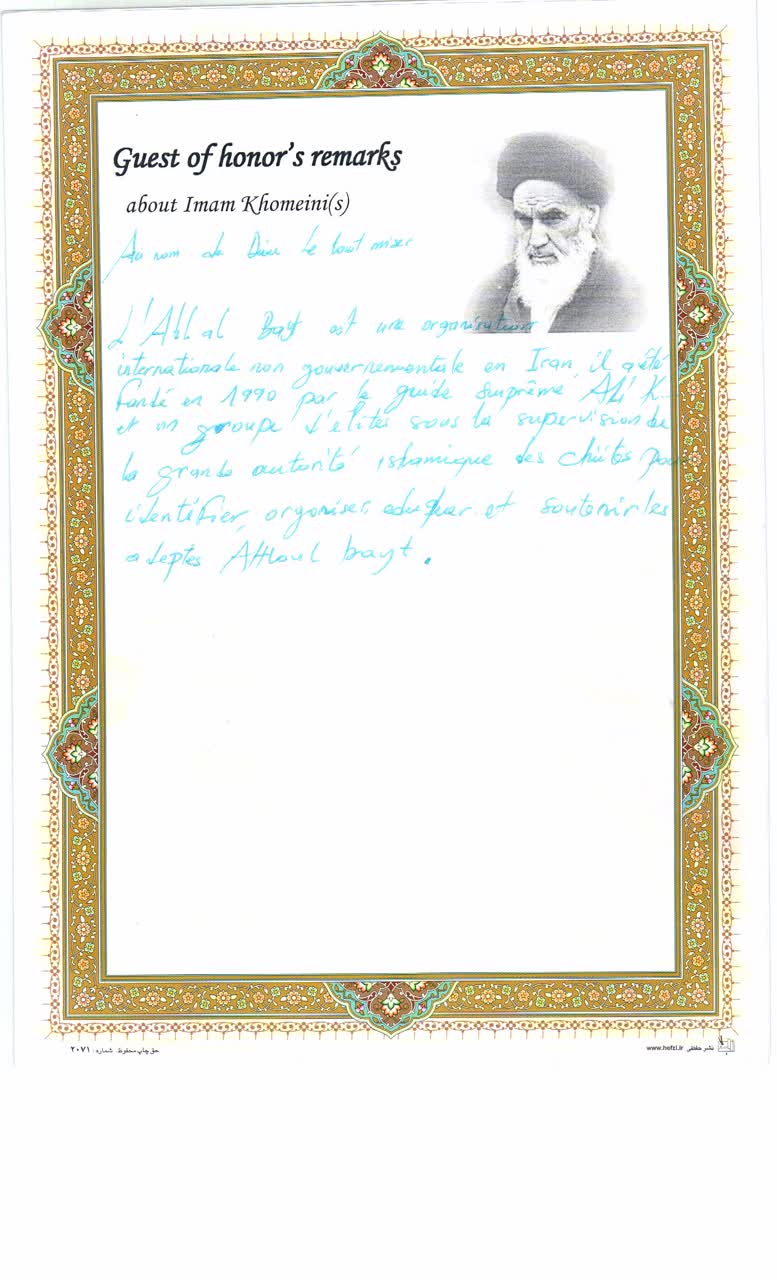 Guest of honor's remarks
about Imam Khomeini(s)
Au nom de Dieu le tout miser
L'Ahl al Bayt est une organisation
internationale non gouvernementale en Iran, il a été
fondé en 1990 par le guide suprême ALI K...
et un groupe d'élites sous la supervision de
la grande autorité islamique des chiites pour
identifier, organiser, eduquer et soutenir les
adeptes Ahloul bayt.
حق چاپ محفوظ. شماره: ۲۰۷۱
www.hefzi.ir نشر حفظی